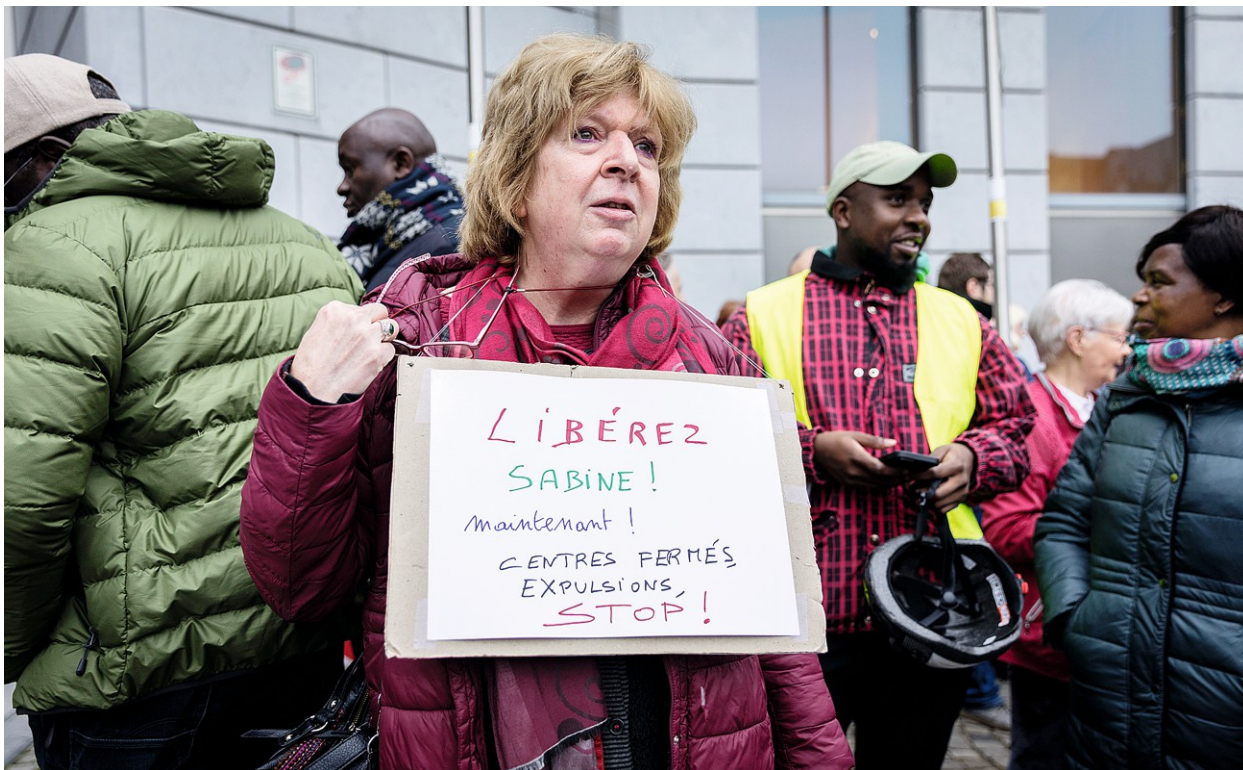 LIBÉREZ
SABINE !
maintenant !
CENTRES FERMÉS
EXPULSIONS,
STOP !